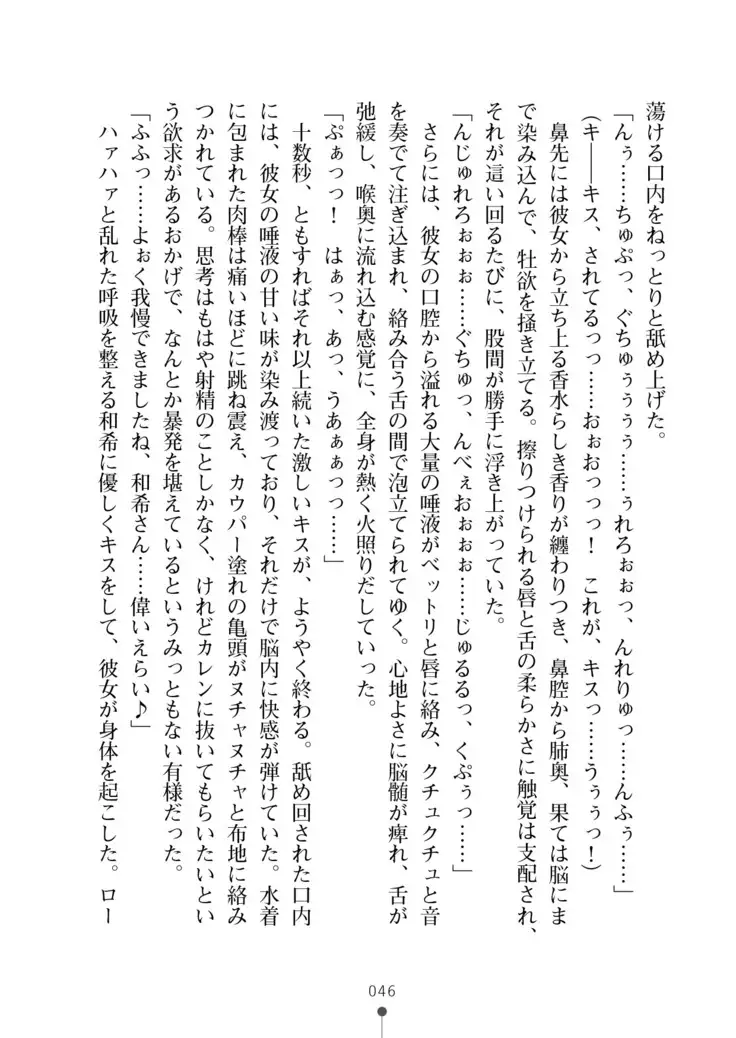 蕩ける口内をねっとりと舐め上げた。
「んぅ……ちゅぷっ、ぐちゅぅぅぅ……ぅれろぉぉっ、んれりゅっ……んふぅ……」
（キ――キス、されてるっっ……おぉおっっっ！　これが、キスっっ……うぅぅっ！）
鼻先には彼女から立ち上る香水らしき香りが纏わりつき、鼻腔から肺奥、果ては脳にま
で染み込んで、牡欲を掻き立てる。擦りつけられる唇と舌の柔らかさに触覚は支配され、
それが這い回るたびに、股間が勝手に浮き上がっていた。
「んじゅれろぉぉぉ……ぐちゅっ、んべぇおぉぉぉ……じゅるるっ、くぷぅっ……」
さらには、彼女の口腔から溢れる大量の唾液がベットリと唇に絡み、クチュクチュと音
を奏でて注ぎ込まれ、絡み合う舌の間で泡立てられてゆく。心地よさに脳髄が痺れ、舌が
弛緩し、喉奥に流れ込む感覚に、全身が熱く火照りだしていった。
「ぷぁっっ！　はぁっ、あっ、うあぁぁっっ……」
十数秒、ともすればそれ以上続いた激しいキスが、ようやく終わる。舐め回された口内
には、彼女の唾液の甘い味が染み渡っており、それだけで脳内に快感が弾けていた。水着
に包まれた肉棒は痛いほどに跳ね震え、カウパー塗れの亀頭がヌチャヌチャと布地に絡み
つかれている。思考はもはや射精のことしかなく、けれどカレンに抜いてもらいたいとい
う欲求があるおかげで、なんとか暴発を堪えているというみっともない有様だった。
「ふふっ……よぉく我慢できましたね、和希さん……偉いえらい♪」
ハァハァと乱れた呼吸を整える和希に優しくキスをして、彼女が身体を起こした。ロー
046